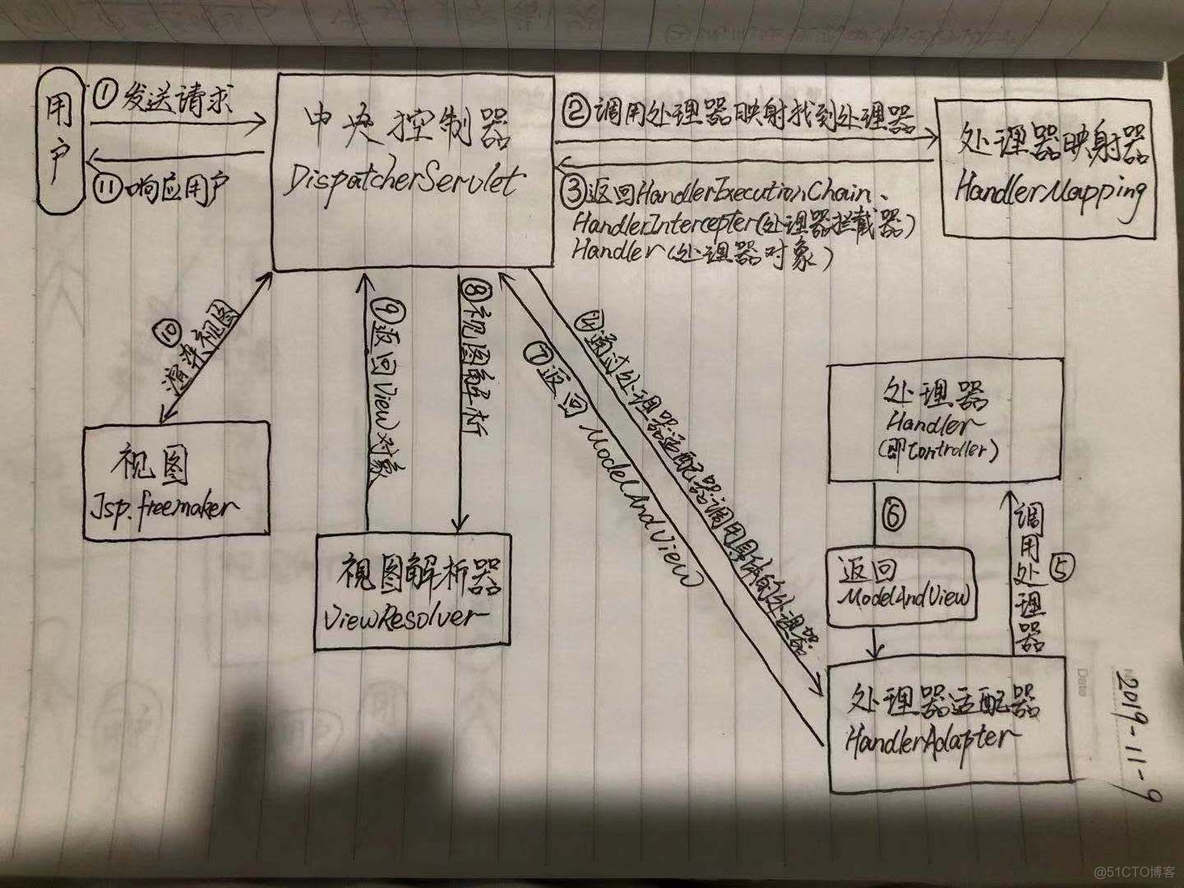 用户
①发送请求
⑪响应用户
中央控制器
DispatcherServlet
②调用处理器映射找到处理器
③返回HandlerExecutionChain、
HandlerIntercepter(处理器拦截器)
Handler(处理器对象)
处理器映射器
HandlerMapping
⑩渲染视图
⑨返回View对象
⑧视图解析
④通过处理器适配器调用具体的处理器
⑦返回ModelAndView
处理器
Handler
(即Controller)
视图
Jsp.freemaker
⑥
返回
ModelAndView
⑤调用处理器
视图解析器
ViewResolver
处理器适配器
HandlerAdapter
Date
2019-11-9
@51CTO博客